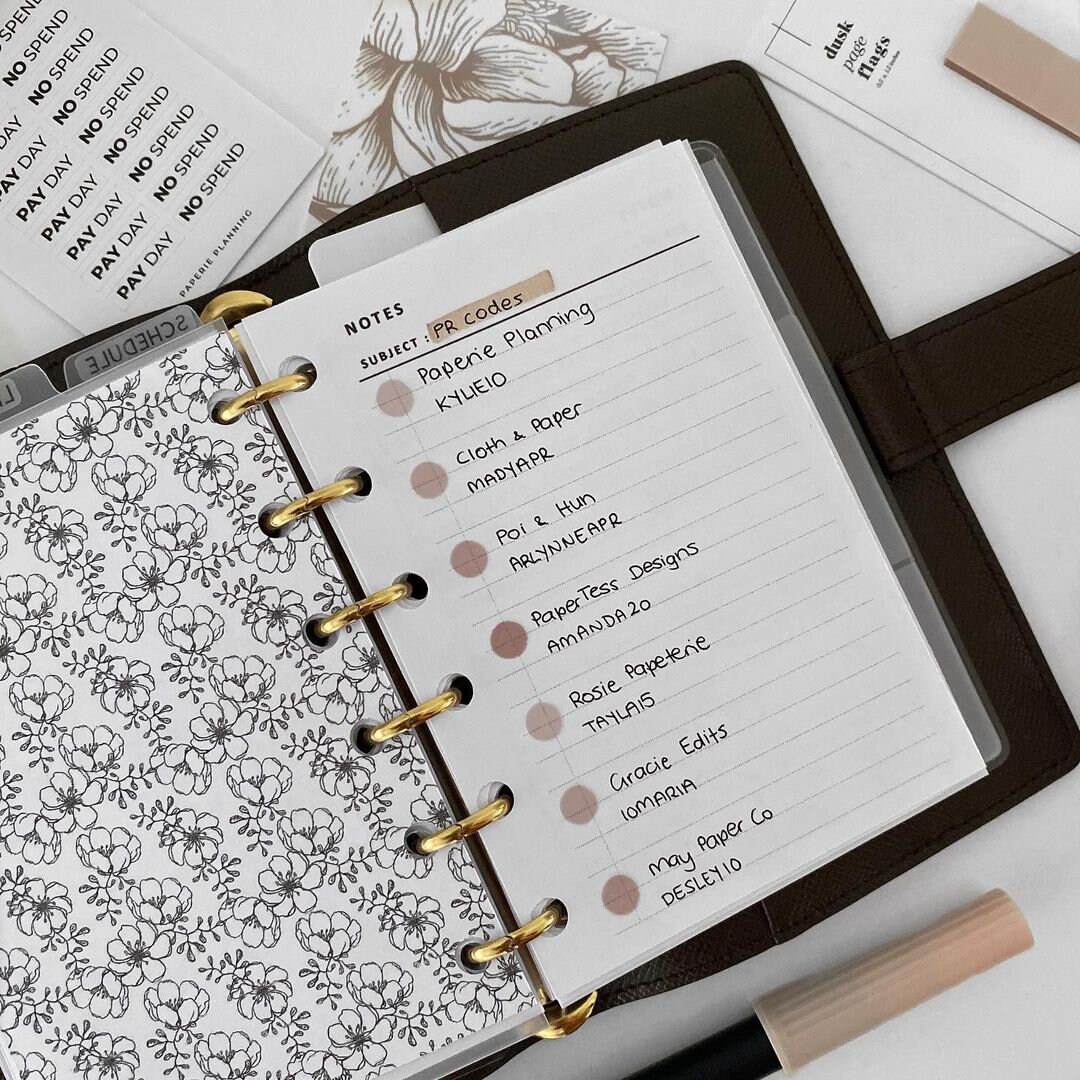 SPEND
NO SPEND
NO SPEND
DAY NO SPEND
PAY DAY NO SPEND
PAY DAY NO SPEND
PAY DAY NO SPEND
PAY DAY NO SPEND
PAY DAY
PAPERIE PLANNING
dusk
page
flags
SCHEDULE
NOTES
SUBJECT : PR codes
Paperie Planning
KYLIE10
Cloth & Paper
MADYAPR
Poi & Hun
ARLYNNEAPR
PaperTess Designs
AMANDA20
Rosie Papeterie
TAYLA15
Gracie Edits
10MARIA
May Paper Co
DESLEY10